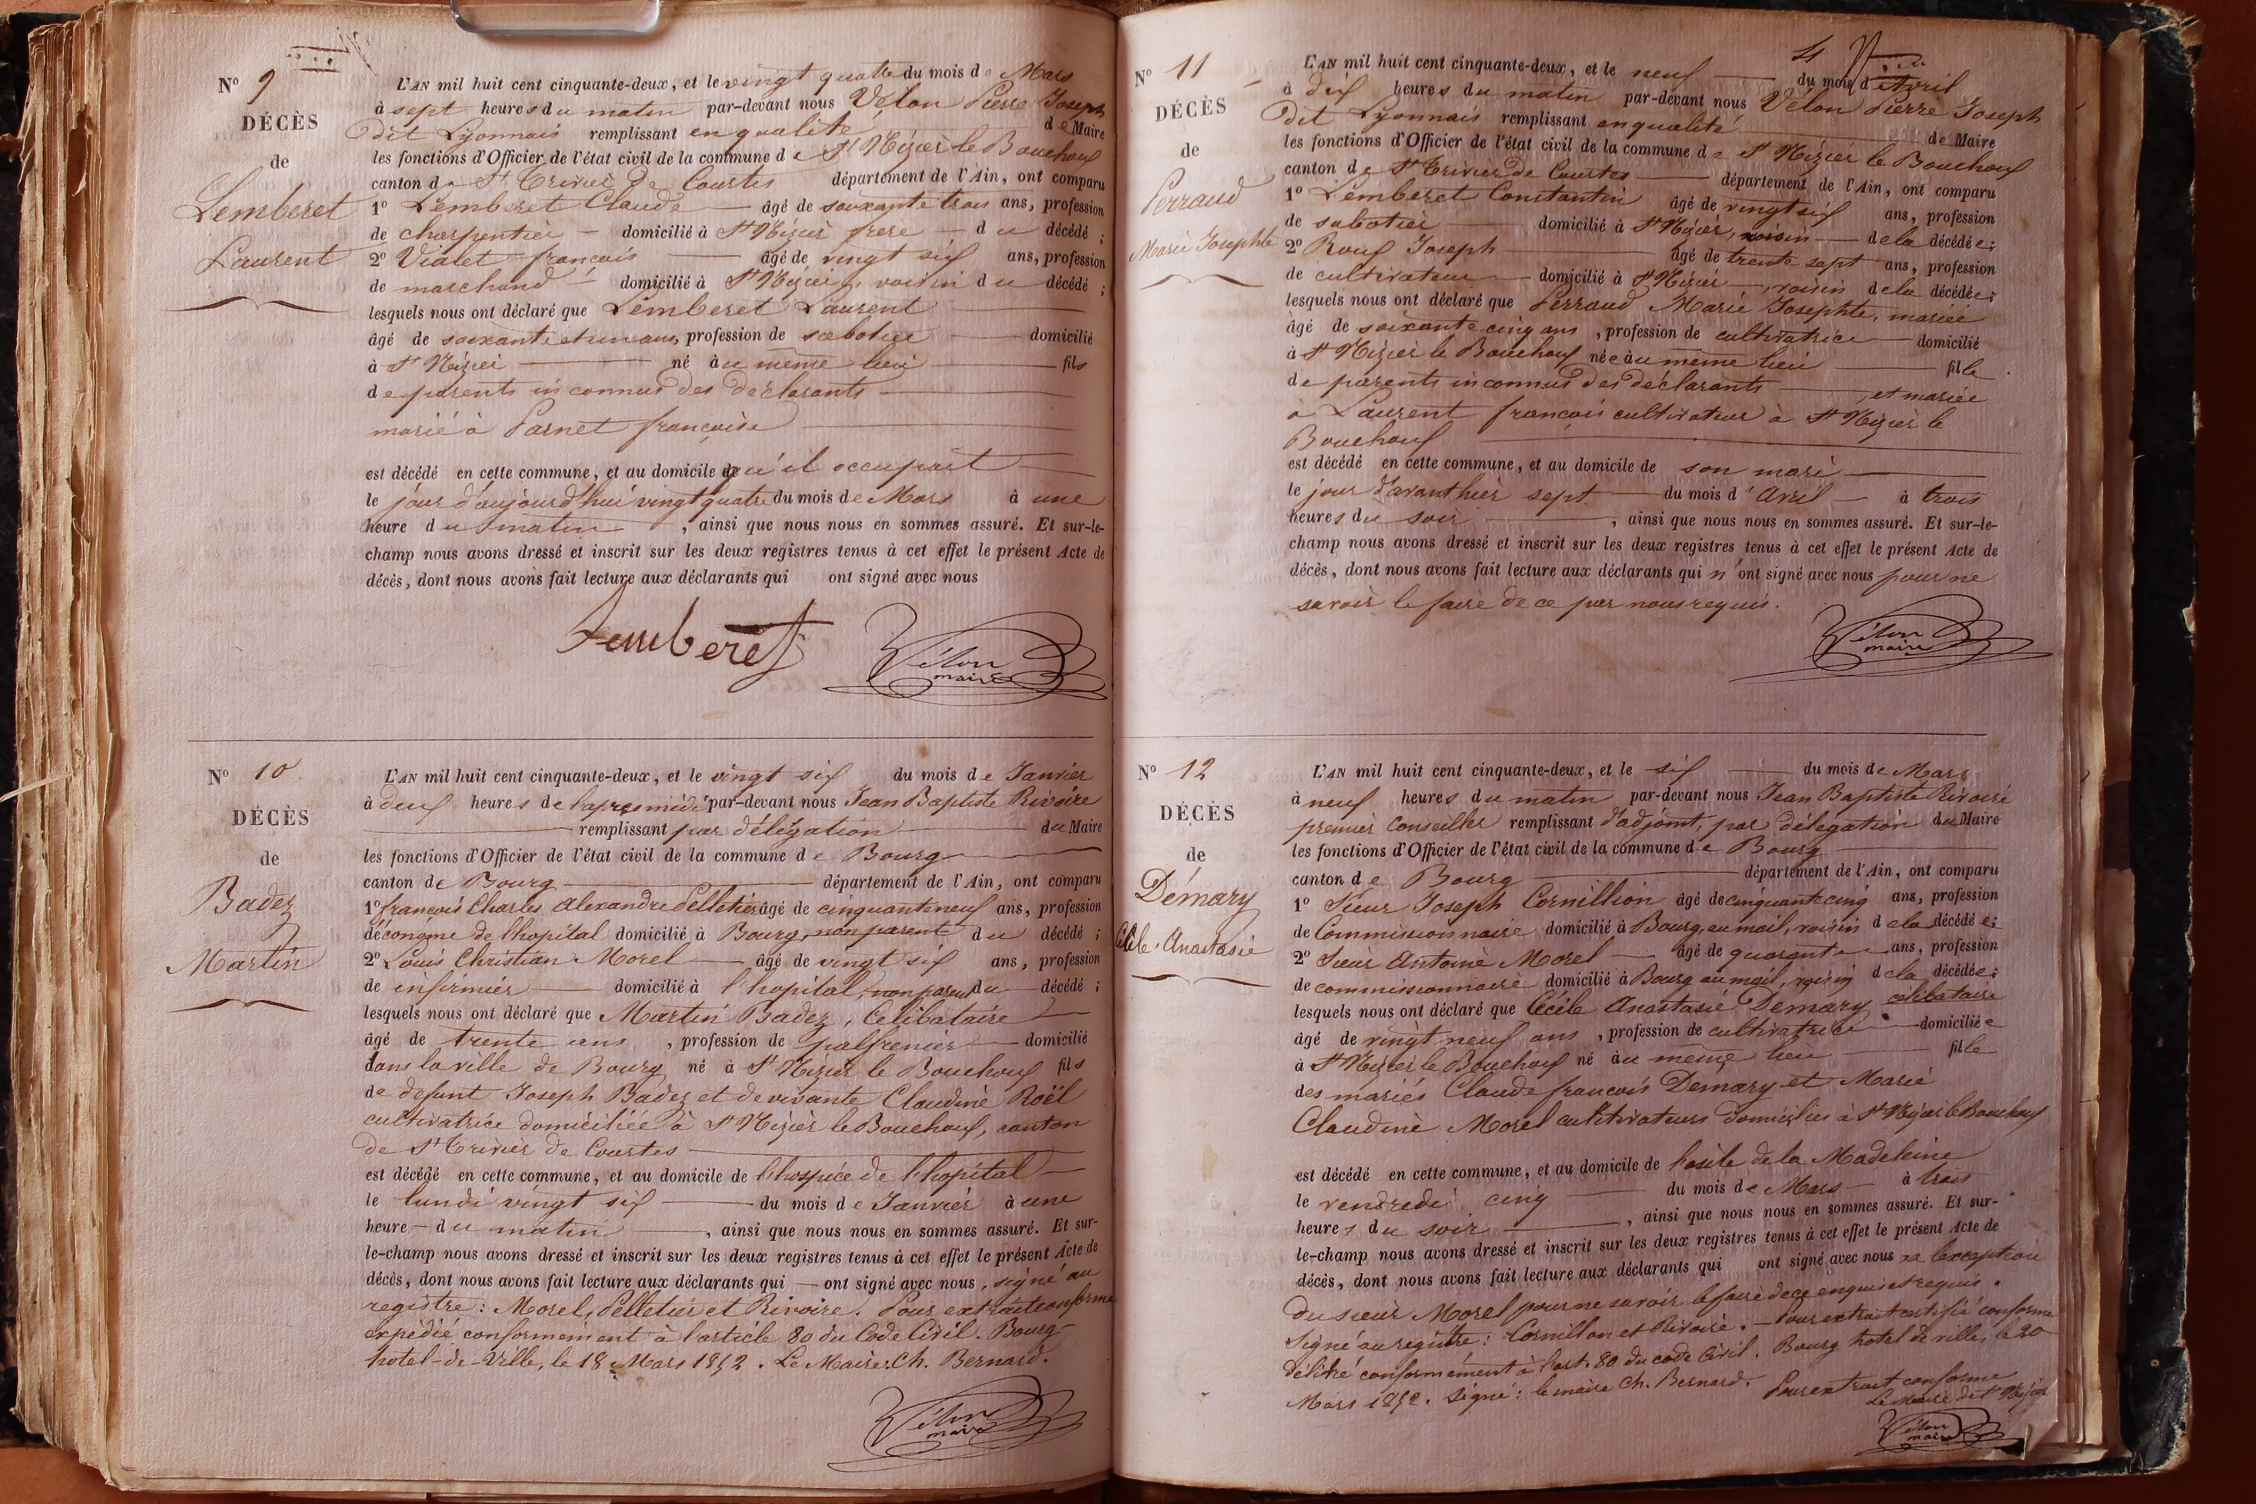 N° 9
DÉCÈS
de
Lemberet
Laurent
L'AN mil huit cent cinquante-deux, et le vingt quatre du mois de Mars
à sept heures du matin par-devant nous Vélon Pierre Joseph
dit Lyonnais remplissant en qualité de Maire
les fonctions d'Officier de l'état civil de la commune de St Nizier le Bouchoux
canton de St Trivier de Courtes département de l'Ain, ont comparu
1° Lemberet Claude âgé de soixante trois ans, profession
de charpentier domicilié à St Nizier frere du décédé ;
2° Vialet françois âgé de vingt six ans, profession
de marchand domicilié à St Nizier, voisin du décédé ;
lesquels nous ont déclaré que Lemberet Laurent
âgé de soixante et un ans, profession de sabotier domicilié
à St Nizier né au même lieu fils
de parents inconnus des déclarants
marié à Parnet françoise
est décédé en cette commune, et au domicile qu'il occupait
le jour d'aujourd'hui vingt quatre du mois de Mars à une
heure du matin, ainsi que nous nous en sommes assuré. Et sur-le-
champ nous avons dressé et inscrit sur les deux registres tenus à cet effet le présent Acte de
décès, dont nous avons fait lecture aux déclarants qui ont signé avec nous
Lemberet
Vélon
maire
N° 10
DÉCÈS
de
Badez
Martin
L'AN mil huit cent cinquante-deux, et le vingt six du mois de Janvier
à deux heures de l'après midi par-devant nous Jean Baptiste Rivoire
remplissant par délégation du Maire
les fonctions d'Officier de l'état civil de la commune de Bourg
canton de Bourg département de l'Ain, ont comparu
1° françois Charles Alexandre Pelletier âgé de cinquante neuf ans, profession
d'économe de l'hopital domicilié à Bourg, non parent du décédé ;
2° Louis Christian Morel âgé de vingt six ans, profession
de infirmier domicilié à l'hopital, non parent du décédé ;
lesquels nous ont déclaré que Martin Badez, Célibataire
âgé de trente ans, profession de palfrenier domicilié
dans la ville de Bourg né à St Nizier le Bouchoux fils
de defunt Joseph Badez et de vivante Claudine Roël
cultivatrice domiciliée à St Nizier le Bouchoux, canton
de St Trivier de Courtes
est décédé en cette commune, et au domicile de l'hospice de l'hopital
le lundi vingt six du mois de Janvier à une
heure du matin, ainsi que nous nous en sommes assuré. Et sur-
le-champ nous avons dressé et inscrit sur les deux registres tenus à cet effet le présent Acte de
décès, dont nous avons fait lecture aux déclarants qui ont signé avec nous, signé au
registre : Morel, Pelletier et Rivoire. Pour extrait conforme
expédié conformément à l'article 80 du Code Civil. Bourg
hotel-de-Ville, le 18 Mars 1852. Le Maire Ch. Bernard.
Vélon
maire
N° 11
DÉCÈS
de
Perraud
Marie Josephte
L'AN mil huit cent cinquante-deux, et le neuf du mois d'Avril
à dix heures du matin par-devant nous Vélon Pierre Joseph
dit Lyonnais remplissant en qualité de Maire
les fonctions d'Officier de l'état civil de la commune de St Nizier le Bouchoux
canton de St Trivier de Courtes département de l'Ain, ont comparu
1° Lemberet Constantin âgé de vingt six ans, profession
de sabotier domicilié à St Nizier, voisin de la décédée ;
2° Roux Joseph âgé de trente sept ans, profession
de cultivateur domicilié à St Nizier, voisin de la décédée ;
lesquels nous ont déclaré que Perraud Marie Josephte, mariée
âgé de soixante cinq ans, profession de cultivatrice domicilié
à St Nizier le Bouchoux née au même lieu fille
de parents inconnus des déclarants, et mariée
à Laurent françois cultivateur à St Nizier le
Bouchoux
est décédé en cette commune, et au domicile de son mari
le jour d'avant hier sept du mois d'Avril à trois
heures du soir, ainsi que nous nous en sommes assuré. Et sur-le-
champ nous avons dressé et inscrit sur les deux registres tenus à cet effet le présent Acte de
décès, dont nous avons fait lecture aux déclarants qui n'ont signé avec nous pour ne
savoir le faire de ce par nous requis.
Vélon
maire
N° 12
DÉCÈS
de
Démary
Cécile Anastasie
L'AN mil huit cent cinquante-deux, et le six du mois de Mars
à neuf heures du matin par-devant nous Jean Baptiste Rivoire
premier Conseiller remplissant d'adjoint, par délégation du Maire
les fonctions d'Officier de l'état civil de la commune de Bourg
canton de Bourg département de l'Ain, ont comparu
1° Sieur Joseph Cornillion âgé de cinquante cinq ans, profession
de Commissionnaire domicilié à Bourg, au mail, voisin de la décédée ;
2° Sieur Antoine Morel âgé de quarante ans, profession
de commissionnaire domicilié à Bourg au mail, voisin de la décédée ;
lesquels nous ont déclaré que Cécile Anastasie Demary célibataire
âgé de vingt neuf ans, profession de cultivatrice domiciliée
à St Nizier le Bouchoux né au même lieu fille
des mariés Claude françois Demary et Marie
Claudine Morel cultivateurs domiciliés à St Nizier le Bouchoux
est décédé en cette commune, et au domicile de l'asile de la Madeleine
le vendredi cinq du mois de Mars à trois
heures du soir, ainsi que nous nous en sommes assuré. Et sur-
le-champ nous avons dressé et inscrit sur les deux registres tenus à cet effet le présent Acte de
décès, dont nous avons fait lecture aux déclarants qui ont signé avec nous a l'exception
du sieur Morel pour ne savoir le faire de ce enquis et requis.
Signé au registre : Cornillon et Rivoire. Pour extrait certifié conforme
délivré conformément à l'art. 80 du code Civil. Bourg hotel de ville, le 20
Mars 1852. Signé : le maire Ch. Bernard. Pour extrait conforme
Le Maire de St Nizier
Vélon
maire